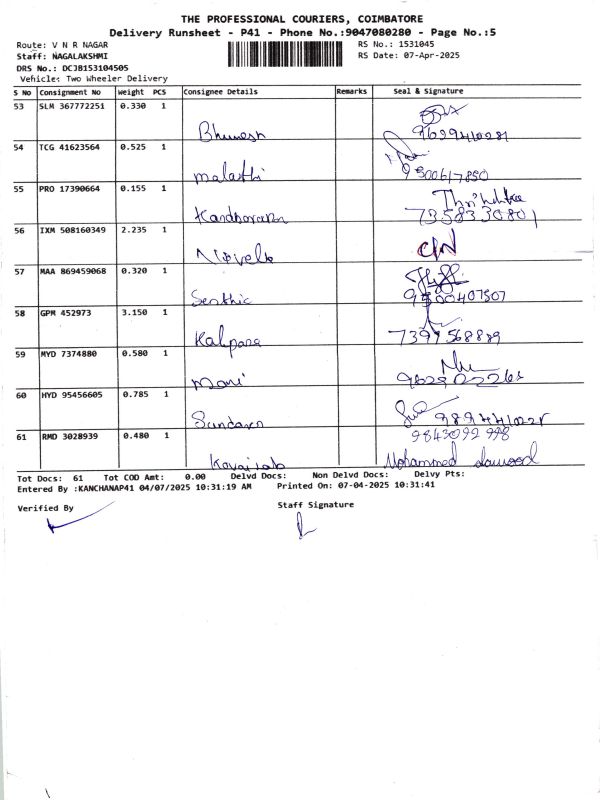 THE PROFESSIONAL COURIERS, COIMBATORE
Delivery Runsheet - P41 - Phone No.:9047080280 - Page No.:5
Route: V N R NAGAR RS No.: 1531045
Staff: NAGALAKSHMI RS Date: 07-Apr-2025
DRS No.: DCJB153104505
Vehicle: Two Wheeler Delivery
S No Consignment No Weight PCS Consignee Details Remarks Seal & Signature
53 SLM 367772251 0.330 1
Bhuvnesh
54 TCG 41623564 0.525 1
malathi 9500617850
55 PRO 17390664 0.155 1
7358330801
56 IXM 508160349 2.235 1
57 MAA 869459068 0.320 1
9500407507
58 GPM 452973 3.150 1
Kalpana 7397568889
59 MYD 7374880 0.580 1
Mani
60 HYD 95456605 0.785 1
Sundaram
61 RMD 3028939 0.480 1 9843092998
Mohammed dawood
Tot Docs: 61 Tot COD Amt: 0.00 Delvd Docs: Non Delvd Docs: Delvy Pts:
Entered By :KANCHANAP41 04/07/2025 10:31:19 AM Printed On: 07-04-2025 10:31:41
Verified By Staff Signature